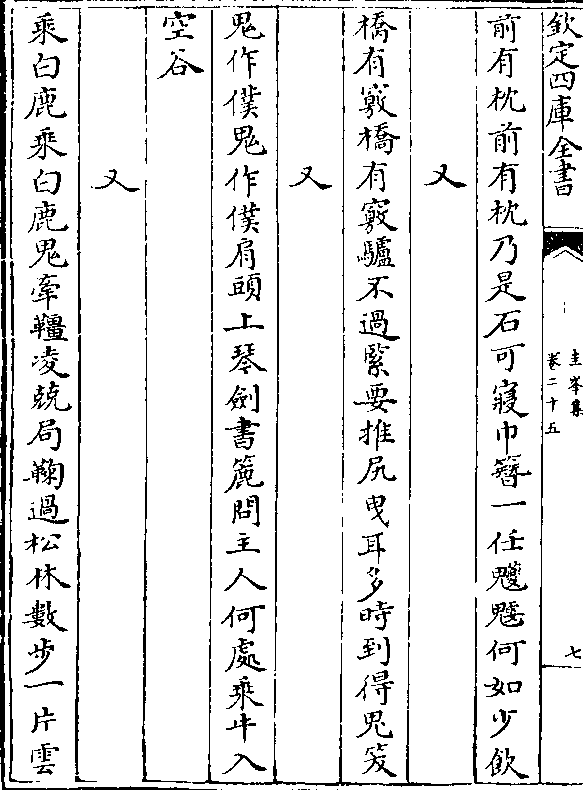 欽定四庫全書
圭峯集
卷二十五
七
前有枕前有枕乃是石可寢巾簪一任魑魅何如少飲
又
橋有竅橋有竅驢不過緊要推尻曳耳多時到得鬼笑
又
鬼作僕鬼作僕肩頭上琴劍書簏問主人何處乘牛入
空谷
又
乘白鹿乘白鹿鬼牽韁凌兢局鞠過松林數步一片雲